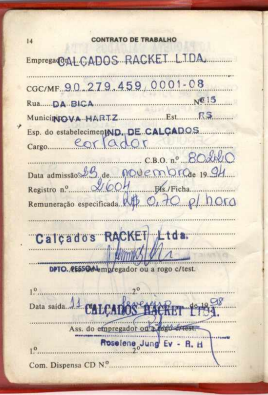 14 CONTRATO DE TRABALHO
Empregador CALÇADOS RACKET LTDA.
CGC/MF 90.279.459.0001-08
Rua DA BICA Nº 15
Município NOVA HARTZ Est. RS
Esp. do estabelecimento IND. DE CALÇADOS
Cargo cortador
C.B.O. nº 80220
Data admissão de novembro de 1994
Registro nº 2604 Fls./Ficha
Remuneração especificada 0,70 p/ hora
Calçados RACKET Ltda.
DPTO. PESSOAL empregador ou a rogo c/test.
1º 2º
Data saída 11 fevereiro de 1998
CALÇADOS RACKET LTDA.
Ass. do empregador ou a rogo c/test.
Roselene Jung Ev - R. H
1º 2º
Com. Dispensa CD Nº